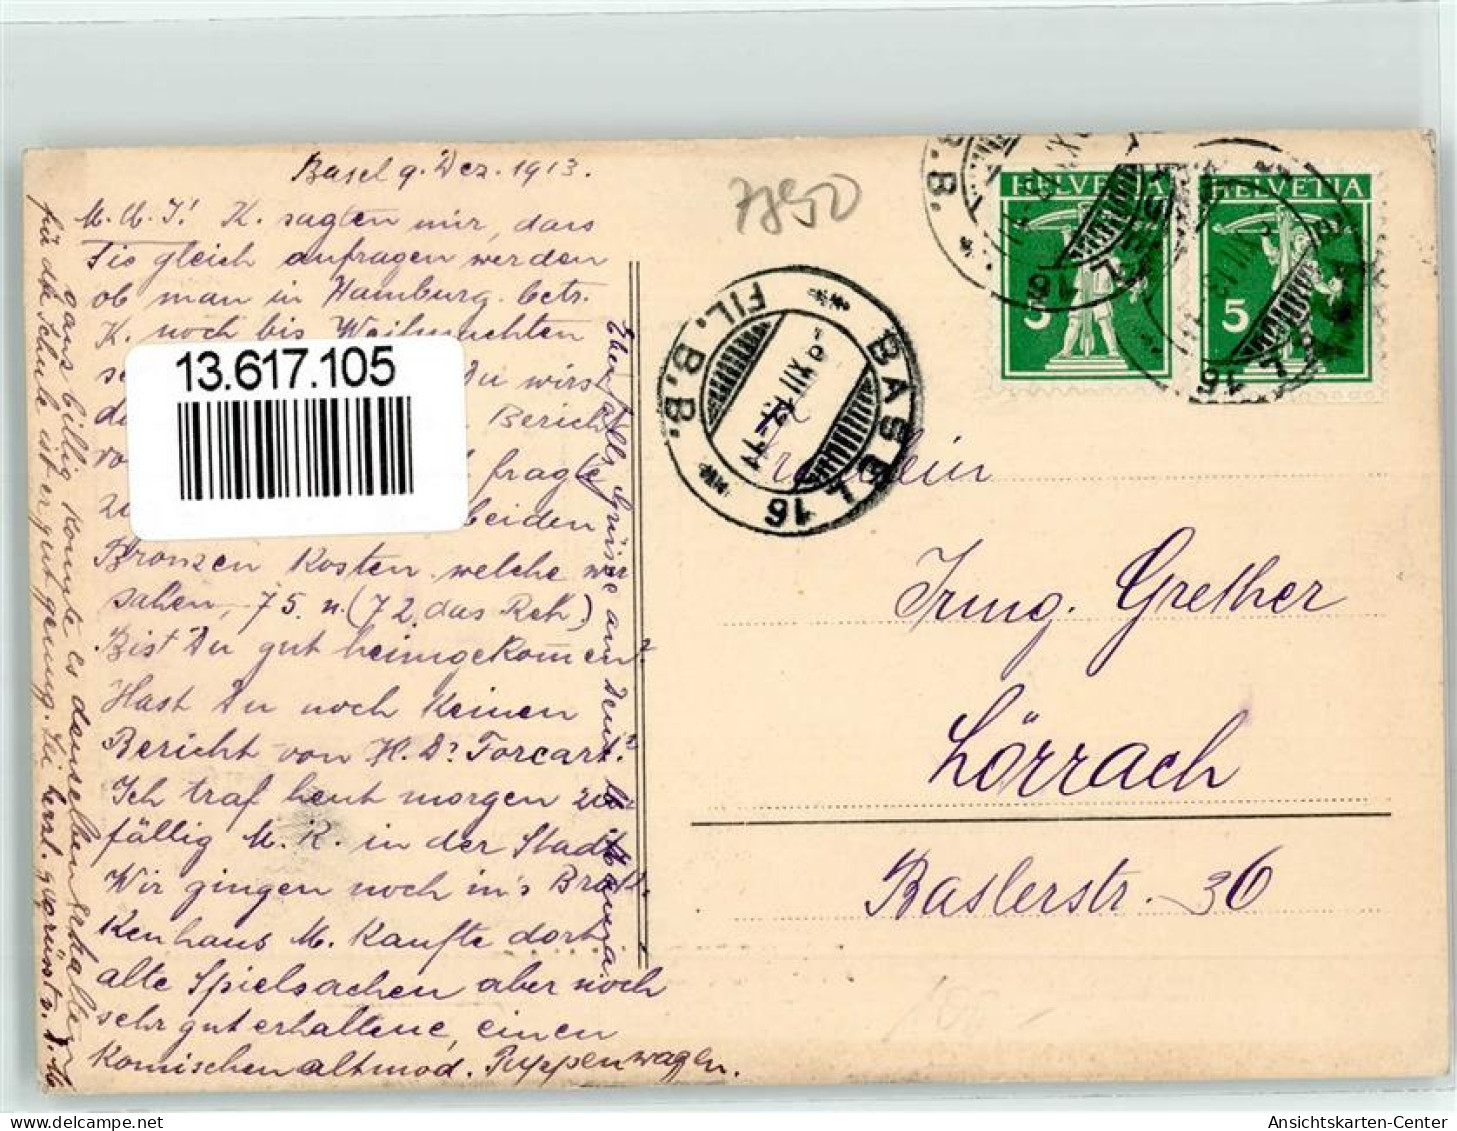 Basel 9. Dez. 1913.
M. M. J! K. sagten mir, dass
Sie gleich anfragen werden
ob man in Hamburg. betr.
K. noch bis Weihnachten
Du wirst
Bericht
fragte
beiden
Bronzen Kosten welche wir
sahen, 75. u. (72. das Reh.)
Bist Du gut heimgekommen?
Hast Du noch keinen
Bericht von H. Dr Forcart?
Ich traf heut morgen zu-
fällig M. R. in der Stadt
Wir gingen noch in's Brok-
kenhaus M. kaufte dort
alte Spielsachen aber noch
sehr gut erhaltene, einen
Komischen altmod. Puppenwagen.
ganz billig konnte es denselben erhalten
für das Schule ist er gut genug. Sei herzl. gegrüsst v. D. M.
Ebenfalls Grüsse an Deine l. Mama.
7850
HELVETIA
5
HELVETIA
5
BASEL 16
FIL. B.B.
Fräulein
Irmg. Grether
Lörrach
Baslerstr. 36
13.617.105
Ansichtskarten-Center